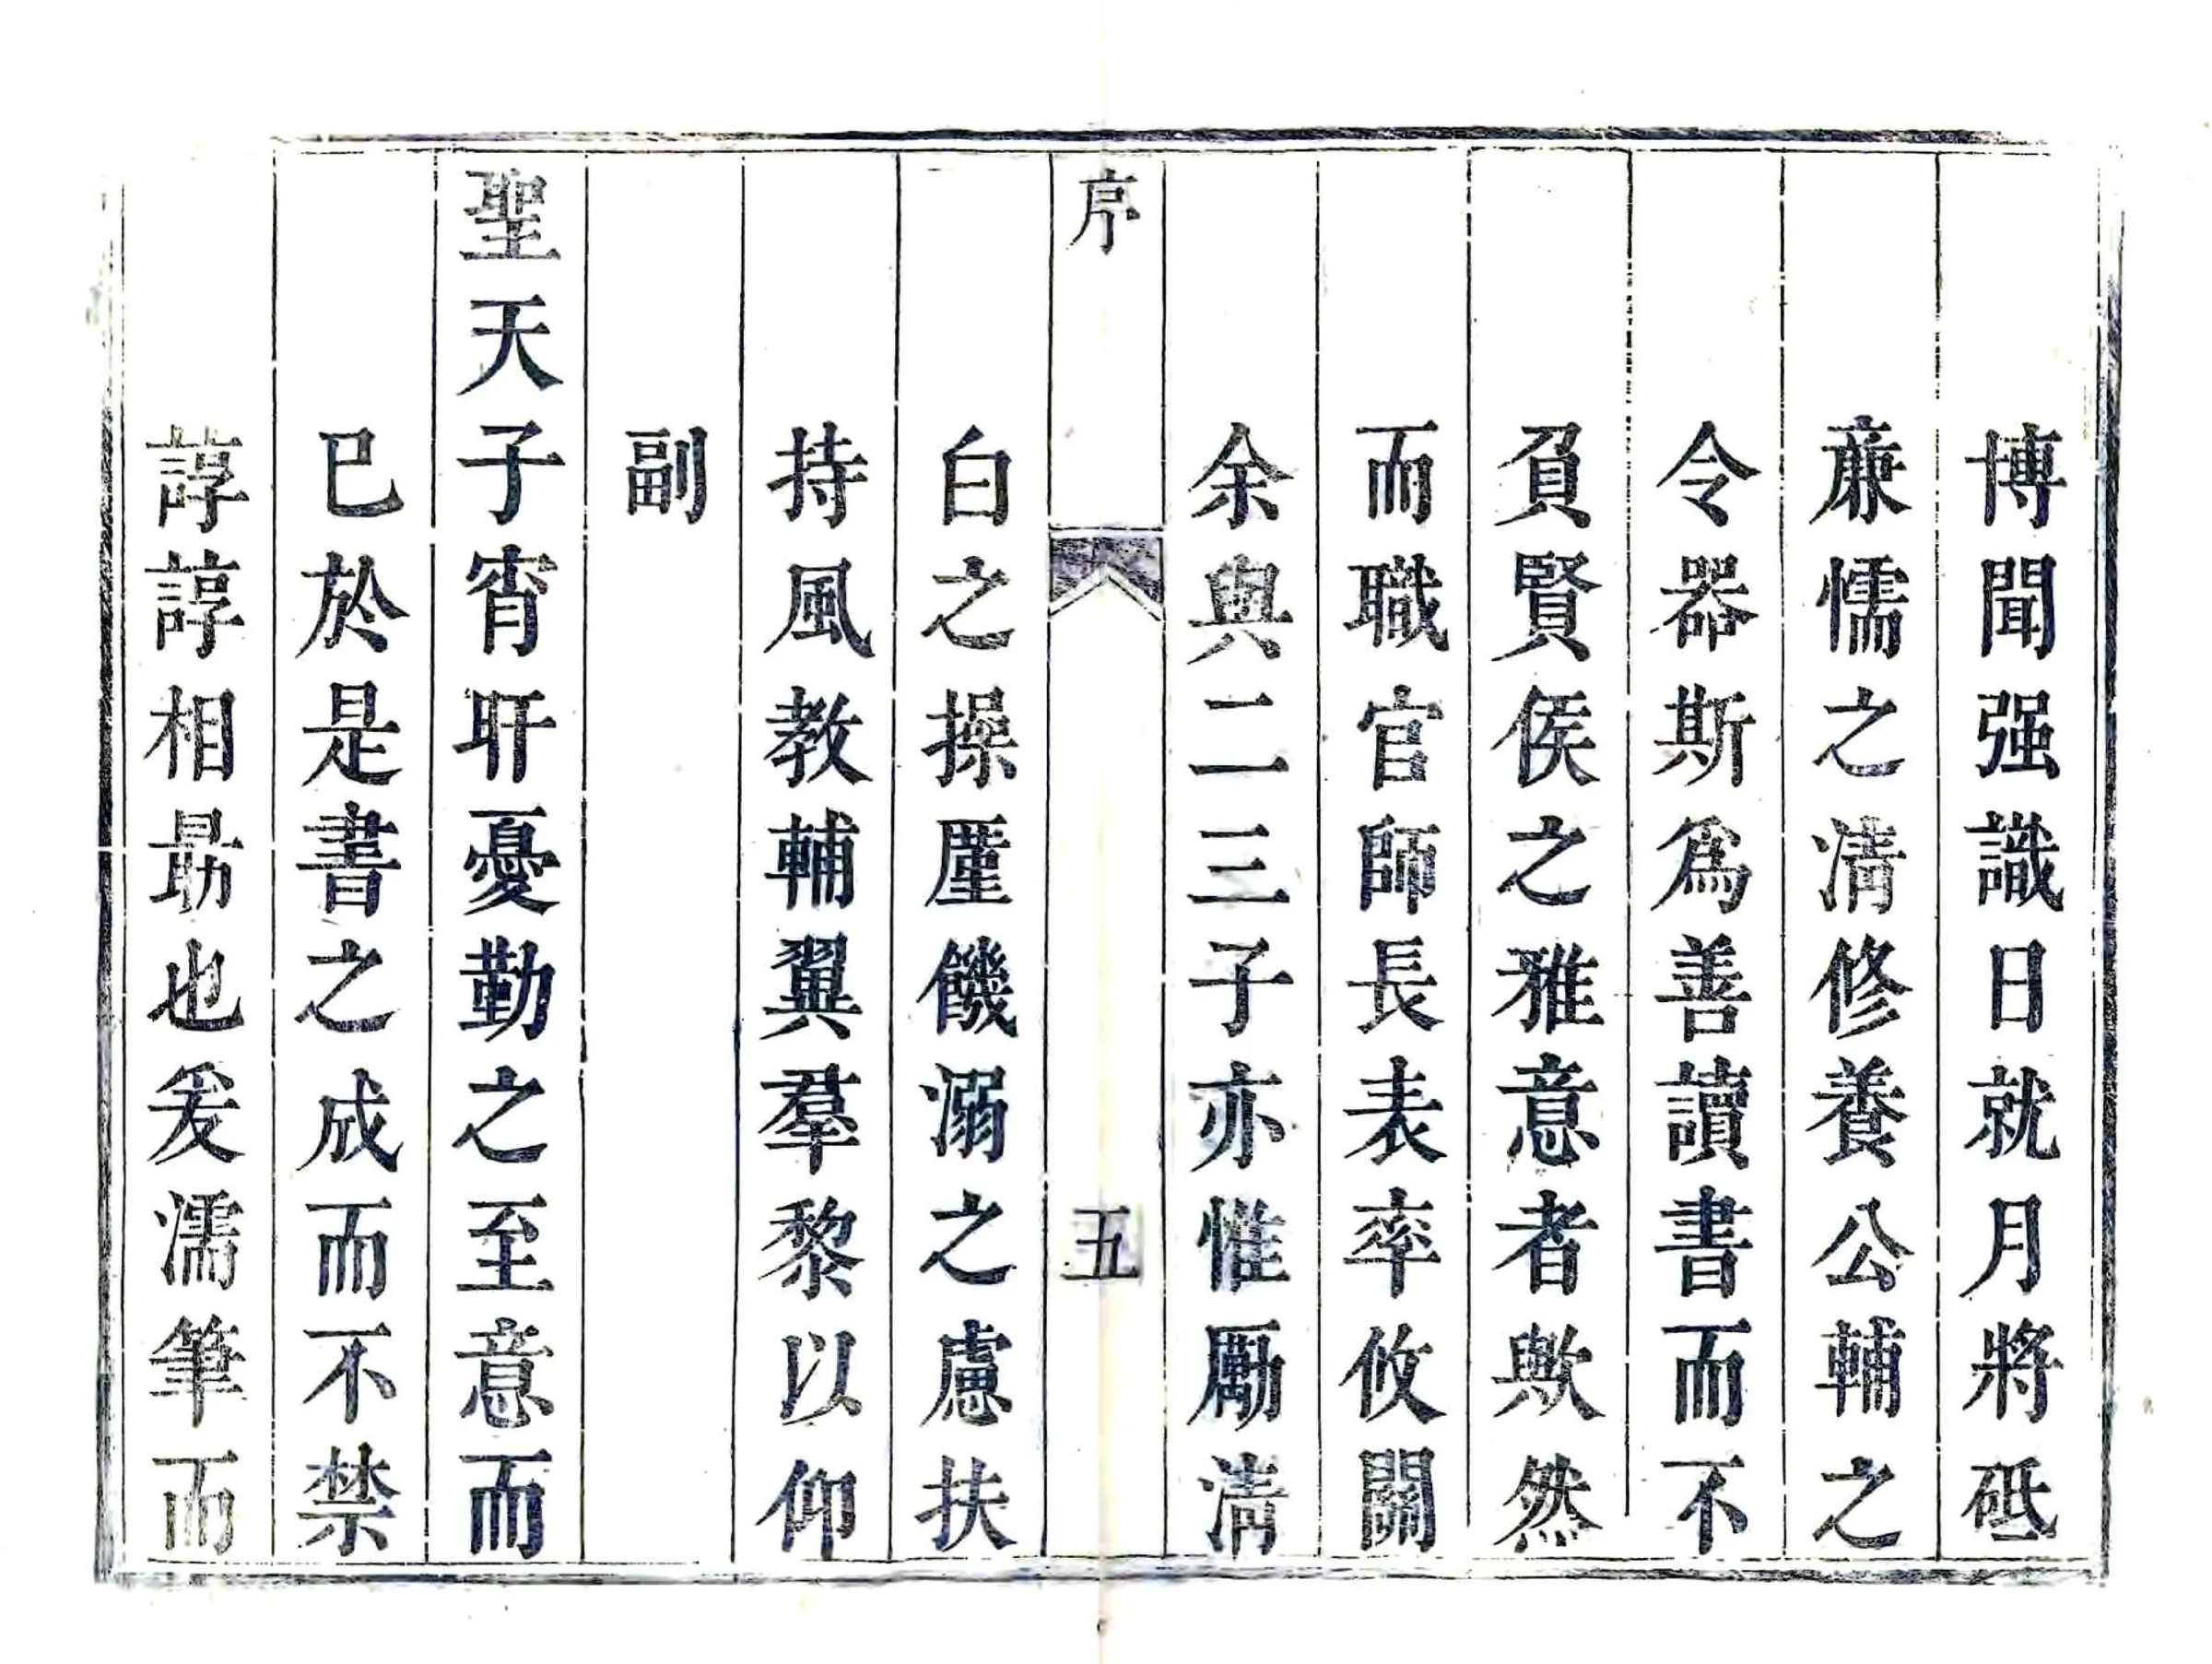 博聞强識日就月將砥
亷懦之清修養公輔之
令器斯爲善讀書而不
負賢侯之雅意者歟然
而職官師長表率攸關
余與二三子亦惟勵清
序
五
白之操廑饑溺之慮扶
持風教輔翼羣黎以仰
副
聖天子宵旰憂勤之至意而
已於是書之成而不禁
諄諄相勗也爰濡筆而